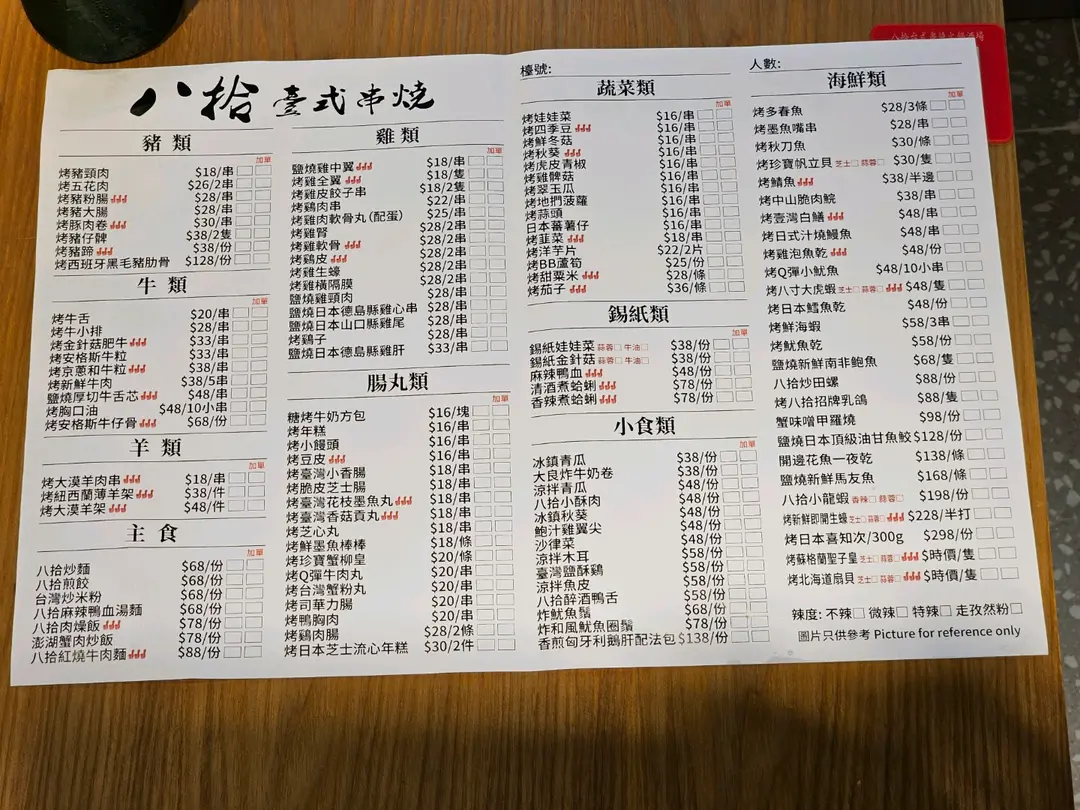 八拾 臺式串燒
豬類
加單
烤豬頸肉 $18/串
烤五花肉 $26/2串
烤豬粉腸 $28/串
烤豬大腸 $28/串
烤豚肉卷 $30/串
烤豬仔髀 $38/2隻
烤豬蹄 $38/份
烤西班牙黑毛豬肋骨 $128/份
牛類
加單
烤牛舌 $20/串
烤牛小排 $28/串
烤金針菇肥牛 $33/串
烤安格斯牛粒 $33/串
烤京蔥和牛粒 $38/串
烤新鮮牛肉 $38/5串
鹽燒厚切牛舌芯 $48/串
烤胸口油 $48/10小串
烤安格斯牛仔骨 $68/份
羊類
加單
烤大漠羊肉串 $18/串
烤紐西蘭薄羊架 $38/件
烤大漠羊架 $48/件
主食
加單
八拾炒麵 $68/份
八拾煎餃 $68/份
台灣炒米粉 $68/份
八拾麻辣鴨血湯麵 $68/份
八拾肉燥飯 $78/份
澎湖蟹肉炒飯 $78/份
八拾紅燒牛肉麵 $88/份
雞類
加單
鹽燒雞中翼 $18/串
烤雞全翼 $18/隻
烤雞皮餃子串 $18/2隻
烤鷄肉串 $22/串
烤雞肉軟骨丸(配蛋) $25/串
烤雞腎 $28/2串
烤雞軟骨 $28/2串
烤鷄皮 $28/2串
烤雞生蠔 $28/2串
烤雞橫隔膜 $28/2串
鹽燒雞頸肉 $28/串
鹽燒日本德島縣雞心串 $28/串
鹽燒日本山口縣雞尾 $28/串
烤鷄子 $28/串
鹽燒日本德島縣雞肝 $33/串
腸丸類
加單
糖烤牛奶方包 $16/塊
烤年糕 $16/串
烤小饅頭 $16/串
烤豆皮 $16/串
烤臺灣小香腸 $18/串
烤脆皮芝士腸 $18/串
烤臺灣花枝墨魚丸 $18/串
烤臺灣香菇貢丸 $18/串
烤芝心丸 $18/串
烤鮮墨魚棒棒 $18/條
烤珍寶蟹柳皇 $20/條
烤Q彈牛肉丸 $20/串
烤台灣蟹粉丸 $20/串
烤司華力腸 $20/串
烤鴨胸肉 $20/串
烤鷄肉腸 $28/2條
烤日本芝士流心年糕 $30/2件
檯號:
蔬菜類
加單
烤娃娃菜 $16/串
烤四季豆 $16/串
烤鮮冬菇 $16/串
烤秋葵 $16/串
烤虎皮青椒 $16/串
烤雞髀菇 $16/串
烤翠玉瓜 $16/串
烤地捫菠蘿 $16/串
烤蒜頭 $16/串
日本蕃薯仔 $16/串
烤韮菜 $18/串
烤洋芋片 $22/2片
烤BB蘆筍 $25/份
烤甜粟米 $28/條
烤茄子 $36/條
錫紙類
加單
錫紙娃娃菜 蒜蓉□ 牛油□ $38/份
錫紙金針菇 蒜蓉□ 牛油□ $38/份
麻辣鴨血 $48/份
清酒煮蛤蜊 $78/份
香辣煮蛤蜊 $78/份
小食類
加單
冰鎮青瓜 $38/份
大良炸牛奶卷 $38/份
涼拌青瓜 $48/份
八拾小酥肉 $48/份
冰鎮秋葵 $48/份
鮑汁雞翼尖 $48/份
沙律菜 $48/份
涼拌木耳 $58/份
臺灣鹽酥鷄 $58/份
涼拌魚皮 $58/份
八拾醉酒鴨舌 $58/份
炸魷魚鬚 $68/份
炸和風魷魚圈鬚 $78/份
香煎匈牙利鵝肝配法包 $138/份
人數:
海鮮類
加單
烤多春魚 $28/3條
烤墨魚嘴串 $28/串
烤秋刀魚 $30/條
烤珍寶帆立貝 芝士□ 蒜蓉□ $30/隻
烤鯖魚 $38/半邊
烤中山脆肉鯇 $38/串
烤壹灣白鱔 $48/串
烤日式汁燒鰻魚 $48/串
烤雞泡魚乾 $48/份
烤Q彈小魷魚 $48/10小串
烤八寸大虎蝦 芝士□ 蒜蓉□ $48/隻
烤日本鱈魚乾 $48/份
烤鮮海蝦 $58/3串
烤魷魚乾 $58/份
鹽燒新鮮南非鮑魚 $68/隻
八拾炒田螺 $88/份
烤八拾招牌乳鴿 $88/隻
蟹味噌甲羅燒 $98/份
鹽燒日本頂級油甘魚鮫 $128/份
開邊花魚一夜乾 $138/條
鹽燒新鮮馬友魚 $168/條
八拾小龍蝦 香辣□ 蒜蓉□ $198/份
烤新鮮即開生蠔 芝士□ 蒜蓉□ $228/半打
烤日本喜知次/300g $298/份
烤蘇格蘭聖子皇 芝士□ 蒜蓉□ $時價/隻
烤北海道扇貝 芝士□ 蒜蓉□ $時價/隻
辣度: 不辣□ 微辣□ 特辣□ 走孜然粉□
圖片只供參考 Picture for reference only